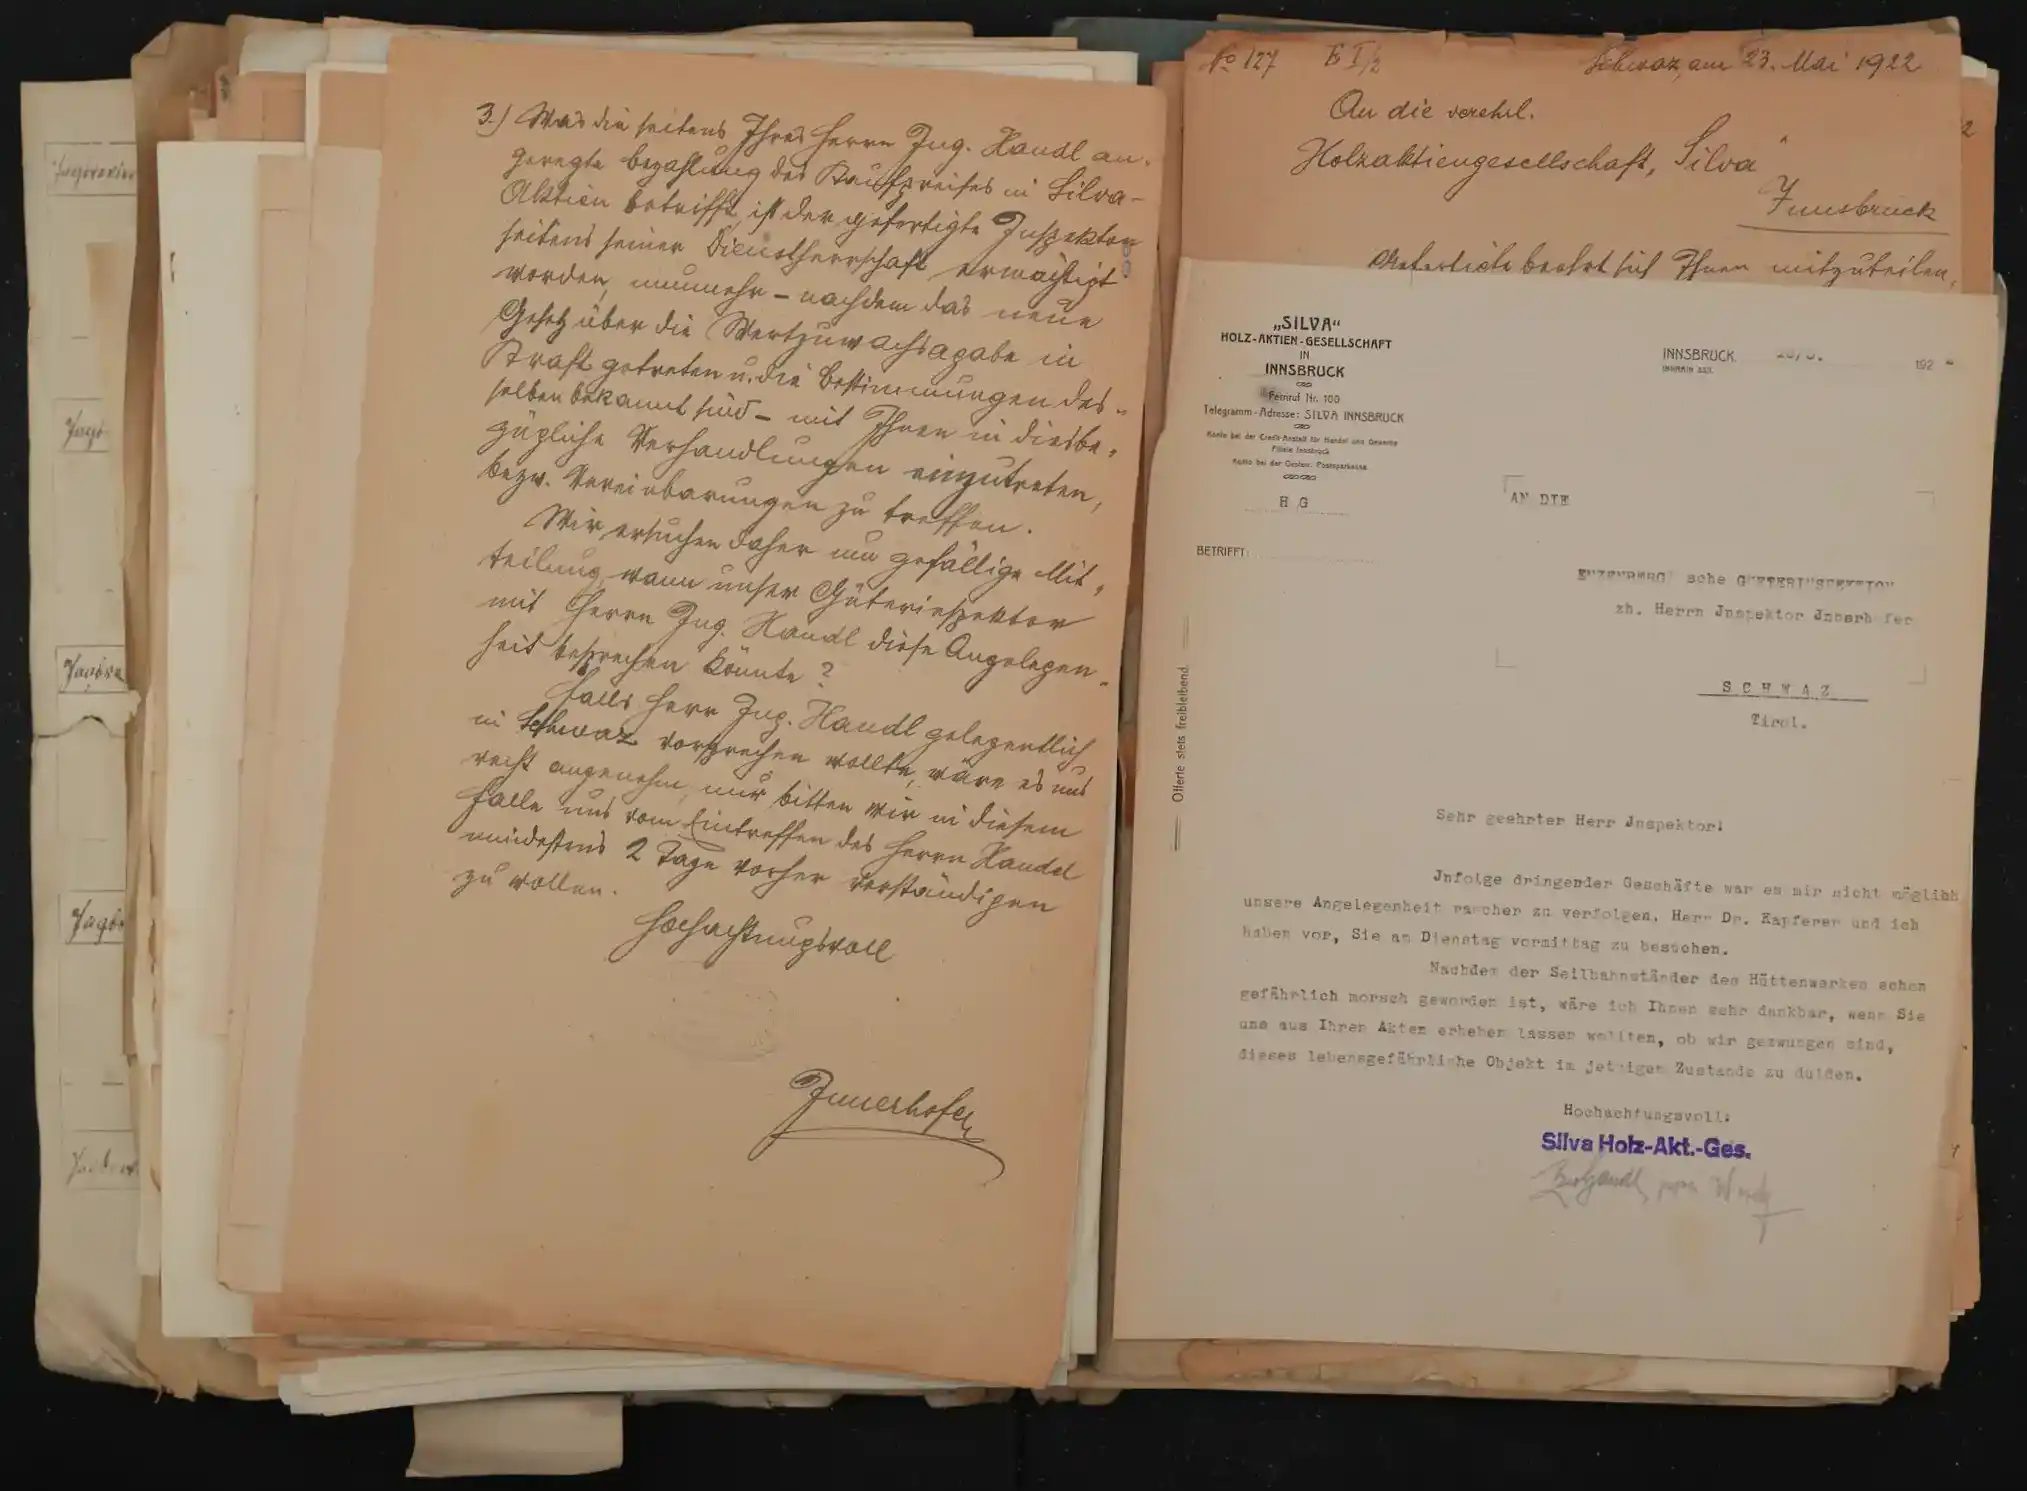 3.) Was die seitens Ihres Herrn Ing. Handl an-
geregte Bezahlung des Kaufpreises in Silva-
Aktien betrifft, ist der gefertigte Inspektor
seitens seiner Dienstherrschaft ermächtigt
worden, nunmehr - nachdem das neue
Gesetz über die Wertzuwachsagabe in
Kraft getreten u. die Bestimmungen des-
selben bekannt sind - mit Ihnen in diesbe-
zügliche Verhandlungen einzutreten,
bezw. Vereinbarungen zu treffen.
Wir ersuchen daher um gefällige Mit-
teilung, wann unser Güterinspektor
mit Herrn Ing. Handl diese Angelegen-
heit besprechen könnte?
Falls Herr Ing. Handl gelegentlich
in Schwaz vorsprechen wollte, wäre es uns
recht angenehm, nur bitten wir in diesem
Falle uns vom Eintreffen des Herrn Handel
mindestens 2 Tage vorher verständigen
zu wollen.
Hochachtungsvoll
Innerhofer
No 127 E I/2 Schwaz, am 23. Mai 1922
An die verehrl.
Holzaktiengesellschaft, Silva"
Innsbruck
Gefertigte beehrt sich Ihnen mitzuteilen,
„SILVA"
HOLZ-AKTIEN-GESELLSCHAFT
IN
INNSBRUCK
Fernruf Nr. 100
Telegramm-Adresse: SILVA INNSBRUCK
Konto bei der Credit-Anstalt für Handel und Gewerbe
Filiale Innsbruck
Konto bei der Oesterr. Postsparkasse
H G
BETRIFFT:
INNSBRUCK, 192
AN DIE
ENZENBERG'sche GUETERINSPEKTION
zh. Herrn Jnspektor Jnnerhofer
SCHWAZ
Tirol.
Offerte stets freibleibend.
Sehr geehrter Herr Jnspektor!
Jnfolge dringender Geschäfte war es mir nicht möglich
unsere Angelegenheit rascher zu verfolgen. Herr Dr. Kapferer und ich
haben vor, Sie am Dienstag vormittag zu besuchen.
Nachdem der Seilbahnständer des Hüttenwerkes schon
gefährlich morsch geworden ist, wäre ich Ihnen sehr dankbar, wenn Sie
uns aus Ihren Akten erheben lassen wollten, ob wir gezwungen sind,
dieses lebensgefährliche Objekt im jetzigen Zustande zu dulden.
Hochachtungsvoll:
Silva Holz-Akt.-Ges.